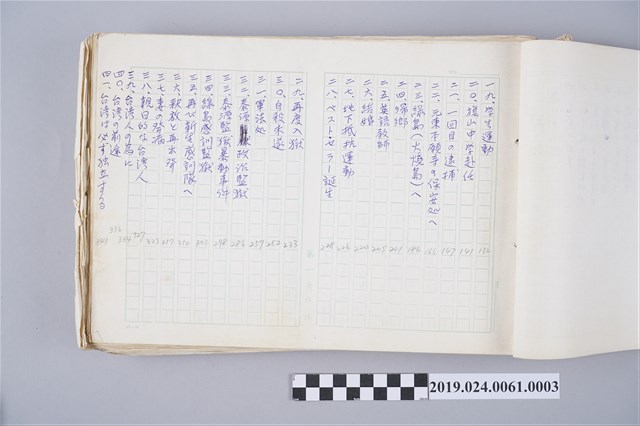 一九、学生運動 132
二〇、猴山中学赴任 141
二一、一回目の逮捕 147
二二、元東本願寺の保安処へ
二三、緑島(火焼島)へ 186
二四、帰郷 201
二五、英語教師 205
二六、結婚 220
二七、地下抵抗運動 226
二八、ベストセラー誕生 228
二九、再度入獄 233
三〇、自殺未遂 252
三一、軍法処 257
三二、泰源政治監獄 286
三三、泰源監獄暴動事件 298
三四、緑島感訓監獄
三五、再び新生感訓隊へ 310
三六、釈放と再出発 317
三七、妻の発病 323
三八、親日的な台湾人 327
三九、台湾人の為に
四〇、台湾の前途 336
四一、台湾は必ず独立する
2019.024.0061.0003